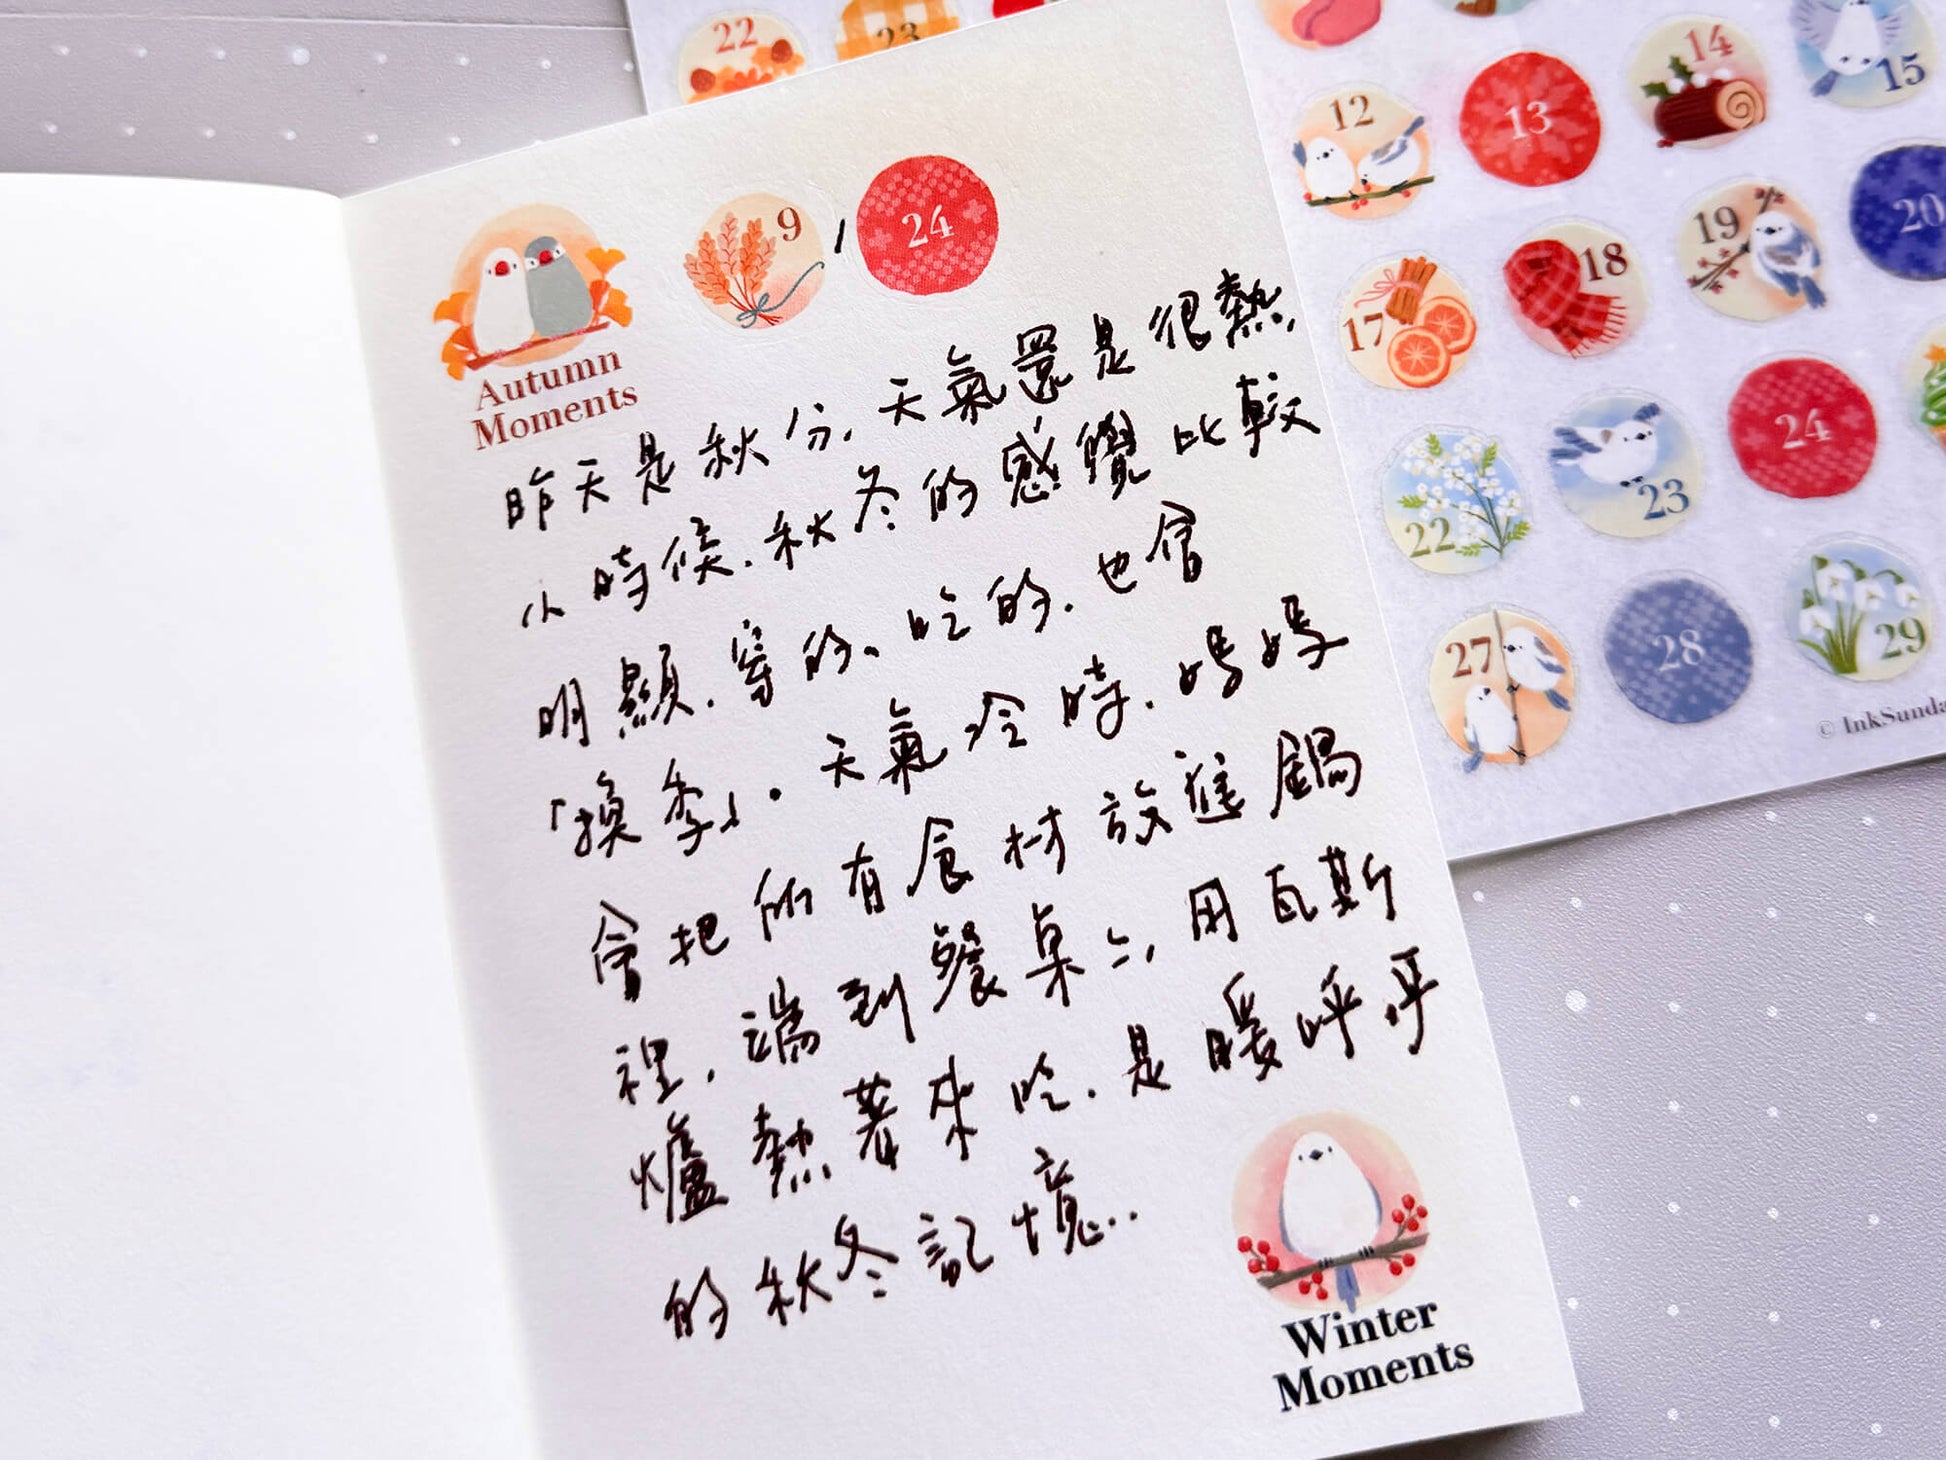 22
23
Autumn
Moments
9 / 24
昨天是秋分，天氣還是很熱，
小時候，秋冬的感覺比較
明顯，穿的、吃的，也會
「換季」。天氣冷時，媽媽
會把所有食材放進鍋
裡，端到餐桌上，用瓦斯
爐熱著來吃，是暖呼呼
的秋冬記憶..
Winter
Moments
12
13
14
15
17
18
19
20
22
23
24
27
28
29
© InkSunda